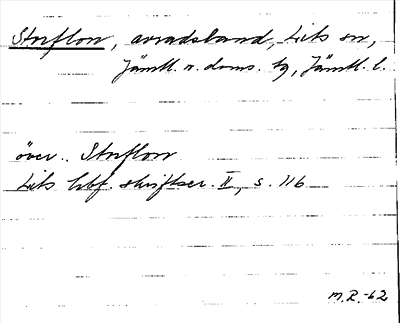 Storflon, avradsland, Lits sn,
Jämtl. n. doms. tg, Jämtl. l.
över.. Storflon
Lits hbf. skriftser. II, s. 116
M.R.-62